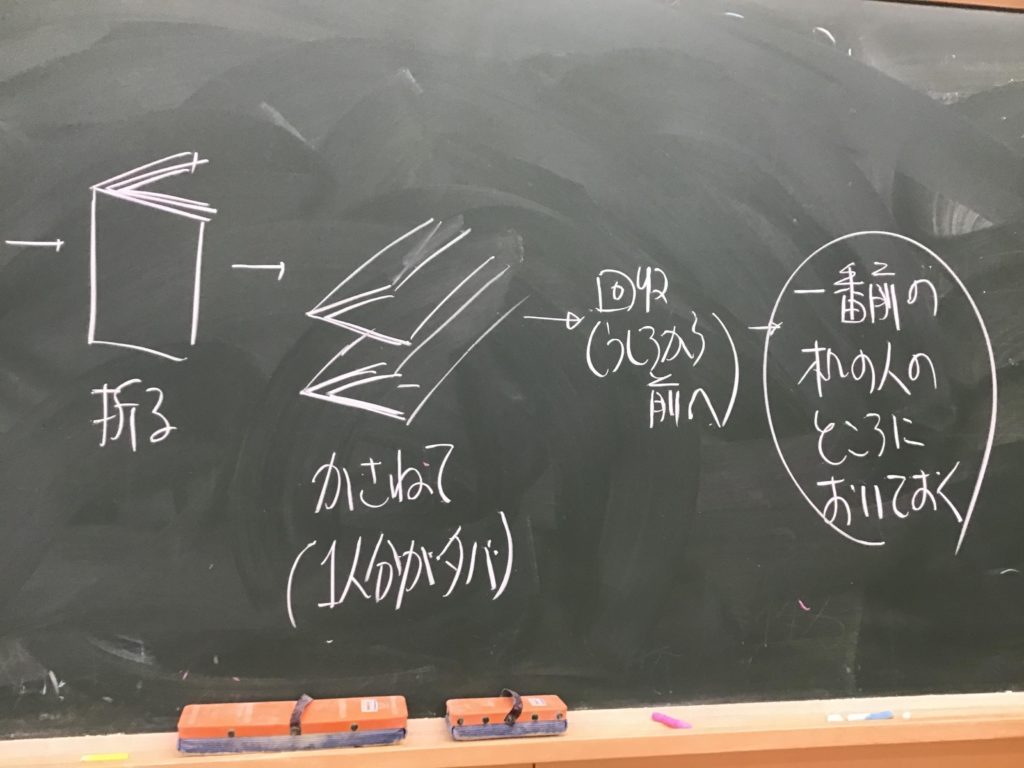 折る
かさねて
(1人分がタバ)
回収
(うしろから
前へ)
一番前の
机の人の
ところに
おいておく